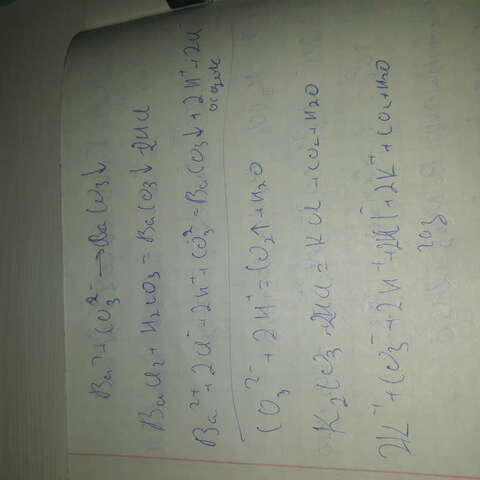 Ba²⁺ + CO₃²⁻ → BaCO₃↓
BaCl₂ + H₂CO₃ = BaCO₃↓ 2HCl
Ba²⁺ + 2Cl⁻ + 2H⁺ + CO₃²⁻ = BaCO₃↓ + 2H⁺ + 2Cl⁻
осадок
CO₃²⁻ + 2H⁺ = CO₂↑ + H₂O
K₂CO₃ + 2HCl = KCl + CO₂ + H₂O
2K⁺ + CO₃⁻ + 2H⁺ + 2Cl⁻ + 2K⁺ + CO₂ + H₂O
газ